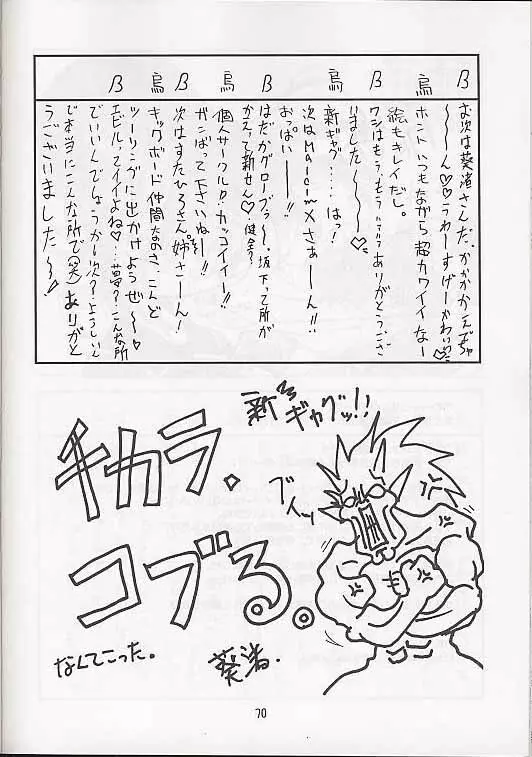 β お次は葵渚さんだ、かかかかえぢゃ
〜〜ん♡♡うわーすげーかわいい♡
烏 ホントいつもながら超カワイイなー
絵もキレイだし。
β ワシはもう、もう…ありがとうござ
いました〜〜〜♡
烏 新ギャグ……はっ!
次はMalcimXさぁーん!!
おっぱい──!!
β はだかグローブっ〜、坂下って所が
かえって新せん♡健全?
烏 個人サークルD・カッコイイー!!
ガンばって下さいねー!!
β 次はすたひろさん、姉さーん!
烏 キックボード仲間なのさ、こんど
ツーリングに出かけようぜ〜〜♡
β エビル、ってイイよね♡…夢?こんな所
でいいんでしょうか〜次?、ようしいん
で本当にこんな所で(笑)ありがと
うございました〜〜!
新ギャグッ!!
チカラ、
コブる。
ブイッ
キ
なんてこった。
葵渚.
70